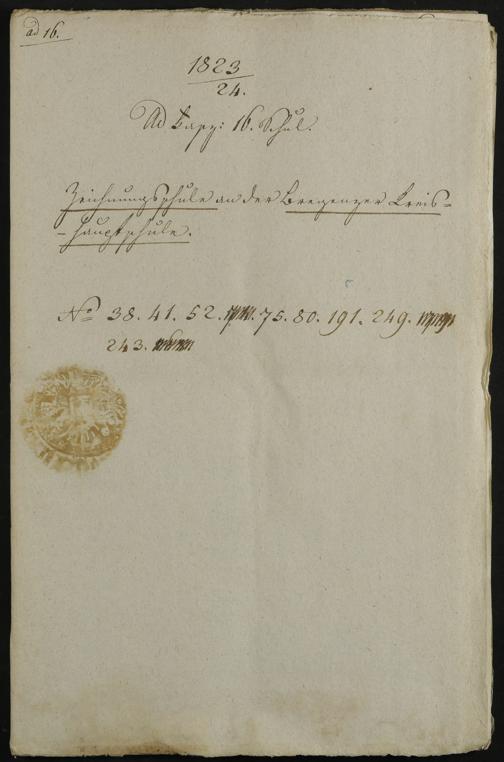 ad 16.
1823
24.
Ad Fasz: 16. Schul.
Zeichnungsschule an der Bregenzer Kreis=
-hauptschule.
No 38. 41. 52. 75. 80. 191. 249.
243.